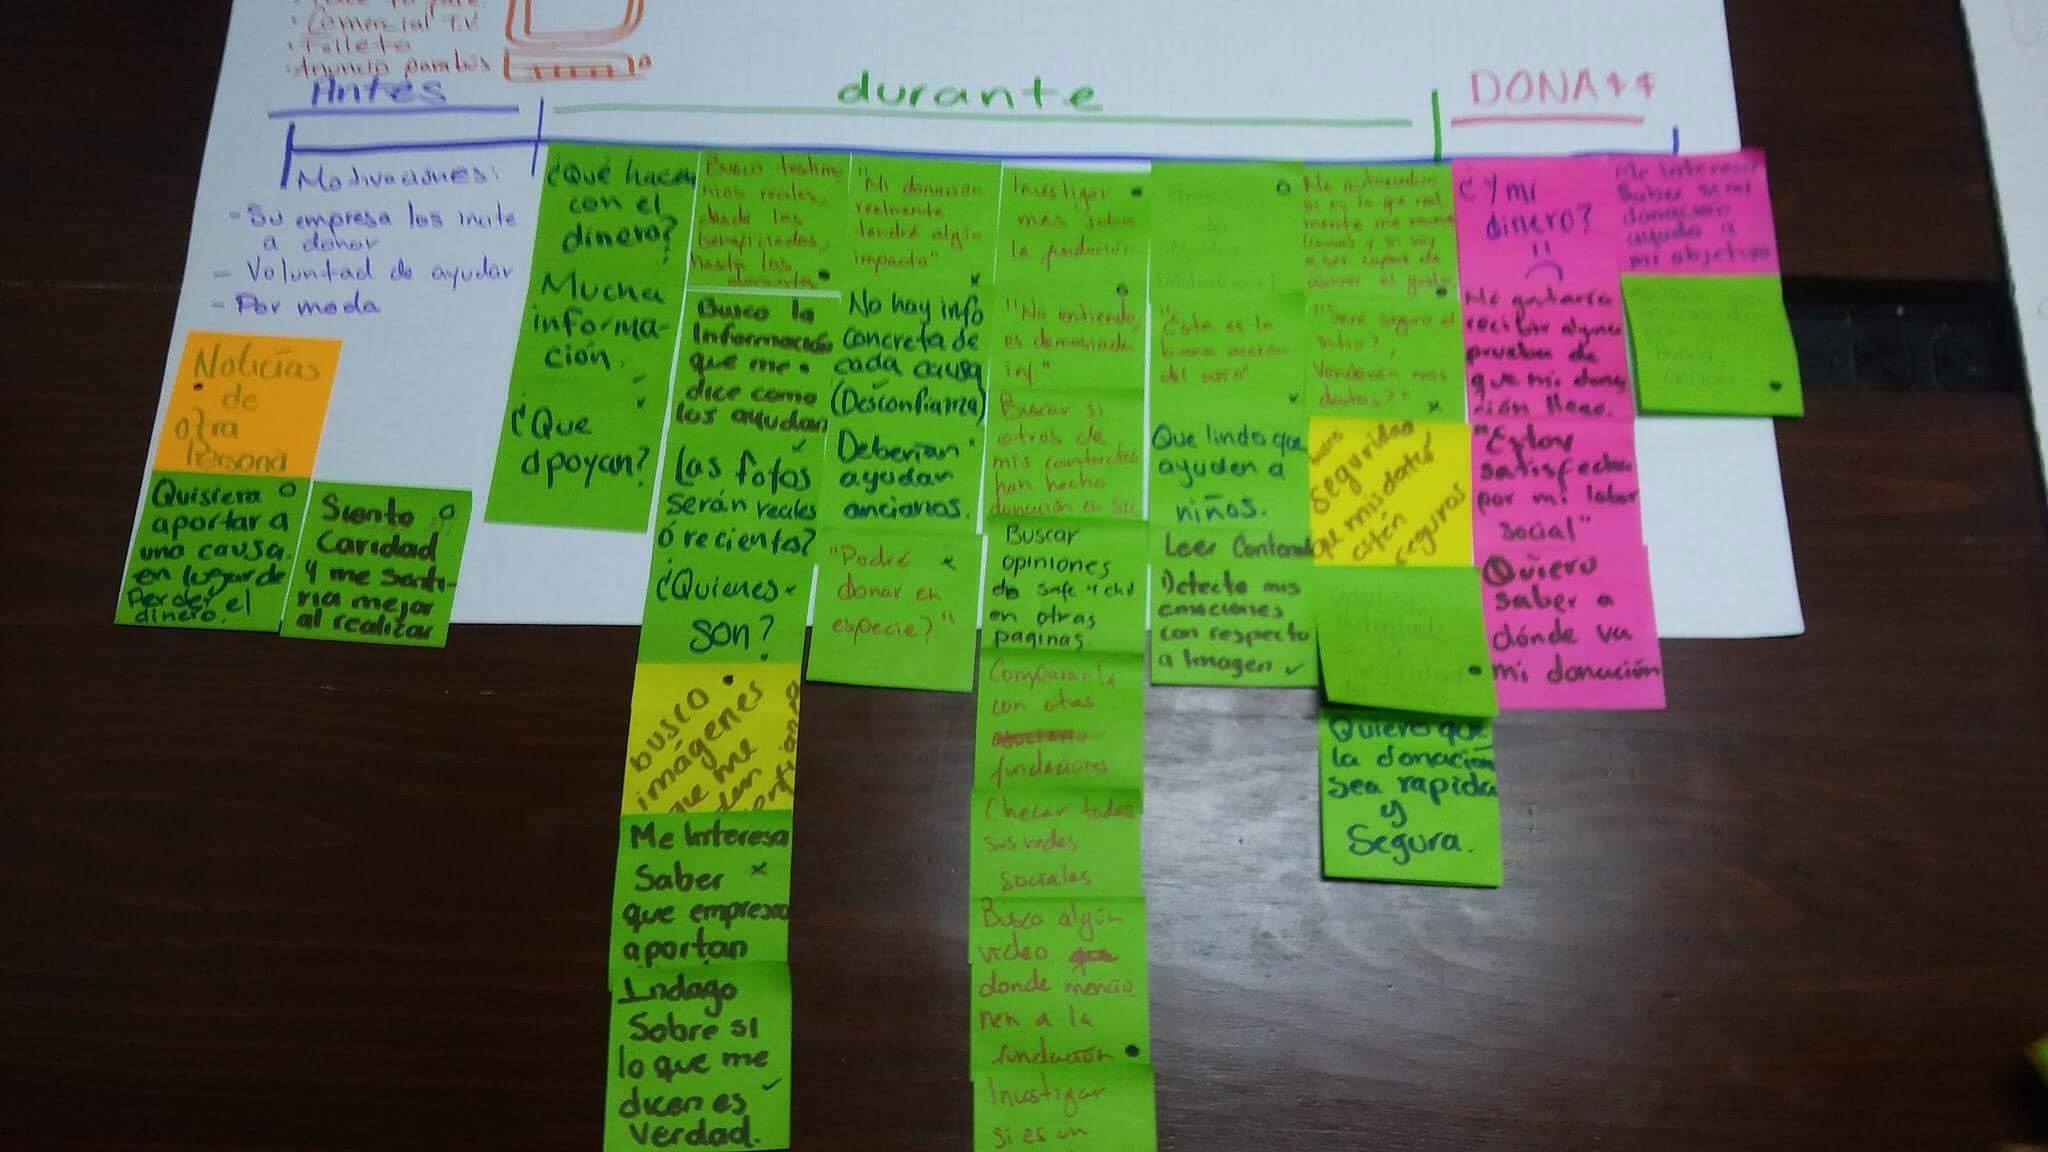 · Comercial T.V
· Folleto
· Anuncio parabús
Antes
durante
DONA$$
Motivaciones:
- Su empresa los incite
a donar
- Voluntad de ayudar
- Por moda
Noticias
de
otra
Persona
Quisiera
aportar a
una causa
en lugar de
perder el
dinero.
Siento
Caridad
y me senti-
ria mejor
al realizar
¿Qué hacen
con el
dinero?
Mucha
informa-
ción.
¿Que
apoyan?
Busco testimo
nios reales,
desde los
beneficiados,
hasta los
donantes
Busco la
Información
que me
dice como
los ayudan
Las fotos
serán reales
ó recientes?
¿Quienes
son?
busco
imágenes
que me
den
Me Interesa
Saber
que empresa
aportan
Indago
Sobre si
lo que me
dicen es
verdad.
"Mi donación
realmente
tendrá algún
impacto"
No hay info
concreta de
cada causa
(Desconfianza)
Deberían
ayudar
ancianos.
"Podré
donar en
especie?"
Investigar
mas sobre
la fundación
"No entiendo,
es demasiada
inf"
Buscar si
otros de
mis contactos
han hecho
donación en
Buscar
opiniones
de safe y chil
en otras
paginas
Comparar la
con otras
fundaciones
Checar todas
sus redes
sociales
Busco algún
video
donde mencio
nen a la
fundación
Investigar
si es un
"Esta es la
buena acción
del año"
Que lindo que
ayuden a
niños.
Leer Conteni
Detecto mis
emociones
con respecto
a Imagen
"Será seguro el
sitio?
Venderán mis
datos?"
Seguridad
que mis datos
estén
seguros
Quiero que
la donación
sea rapida
y
Segura.
¿Y mi
dinero?
Me gustaría
recibir alguna
prueba de
que mi dona
ción llego.
"Estoy
satisfecho
por mi labor
social"
Quiero
saber a
dónde va
mi donación
Me interesa
Saber si mi
donación
ayudo a
mi objetivo